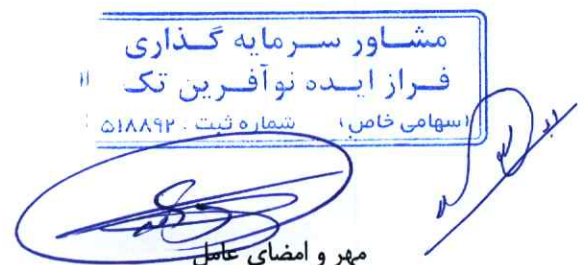 مشاور سرمایه گذاری
فراز ایده نوآفرین تک
(سهامی خاص) شماره ثبت : ۵۱۸۸۹۲
مهر و امضای عامل